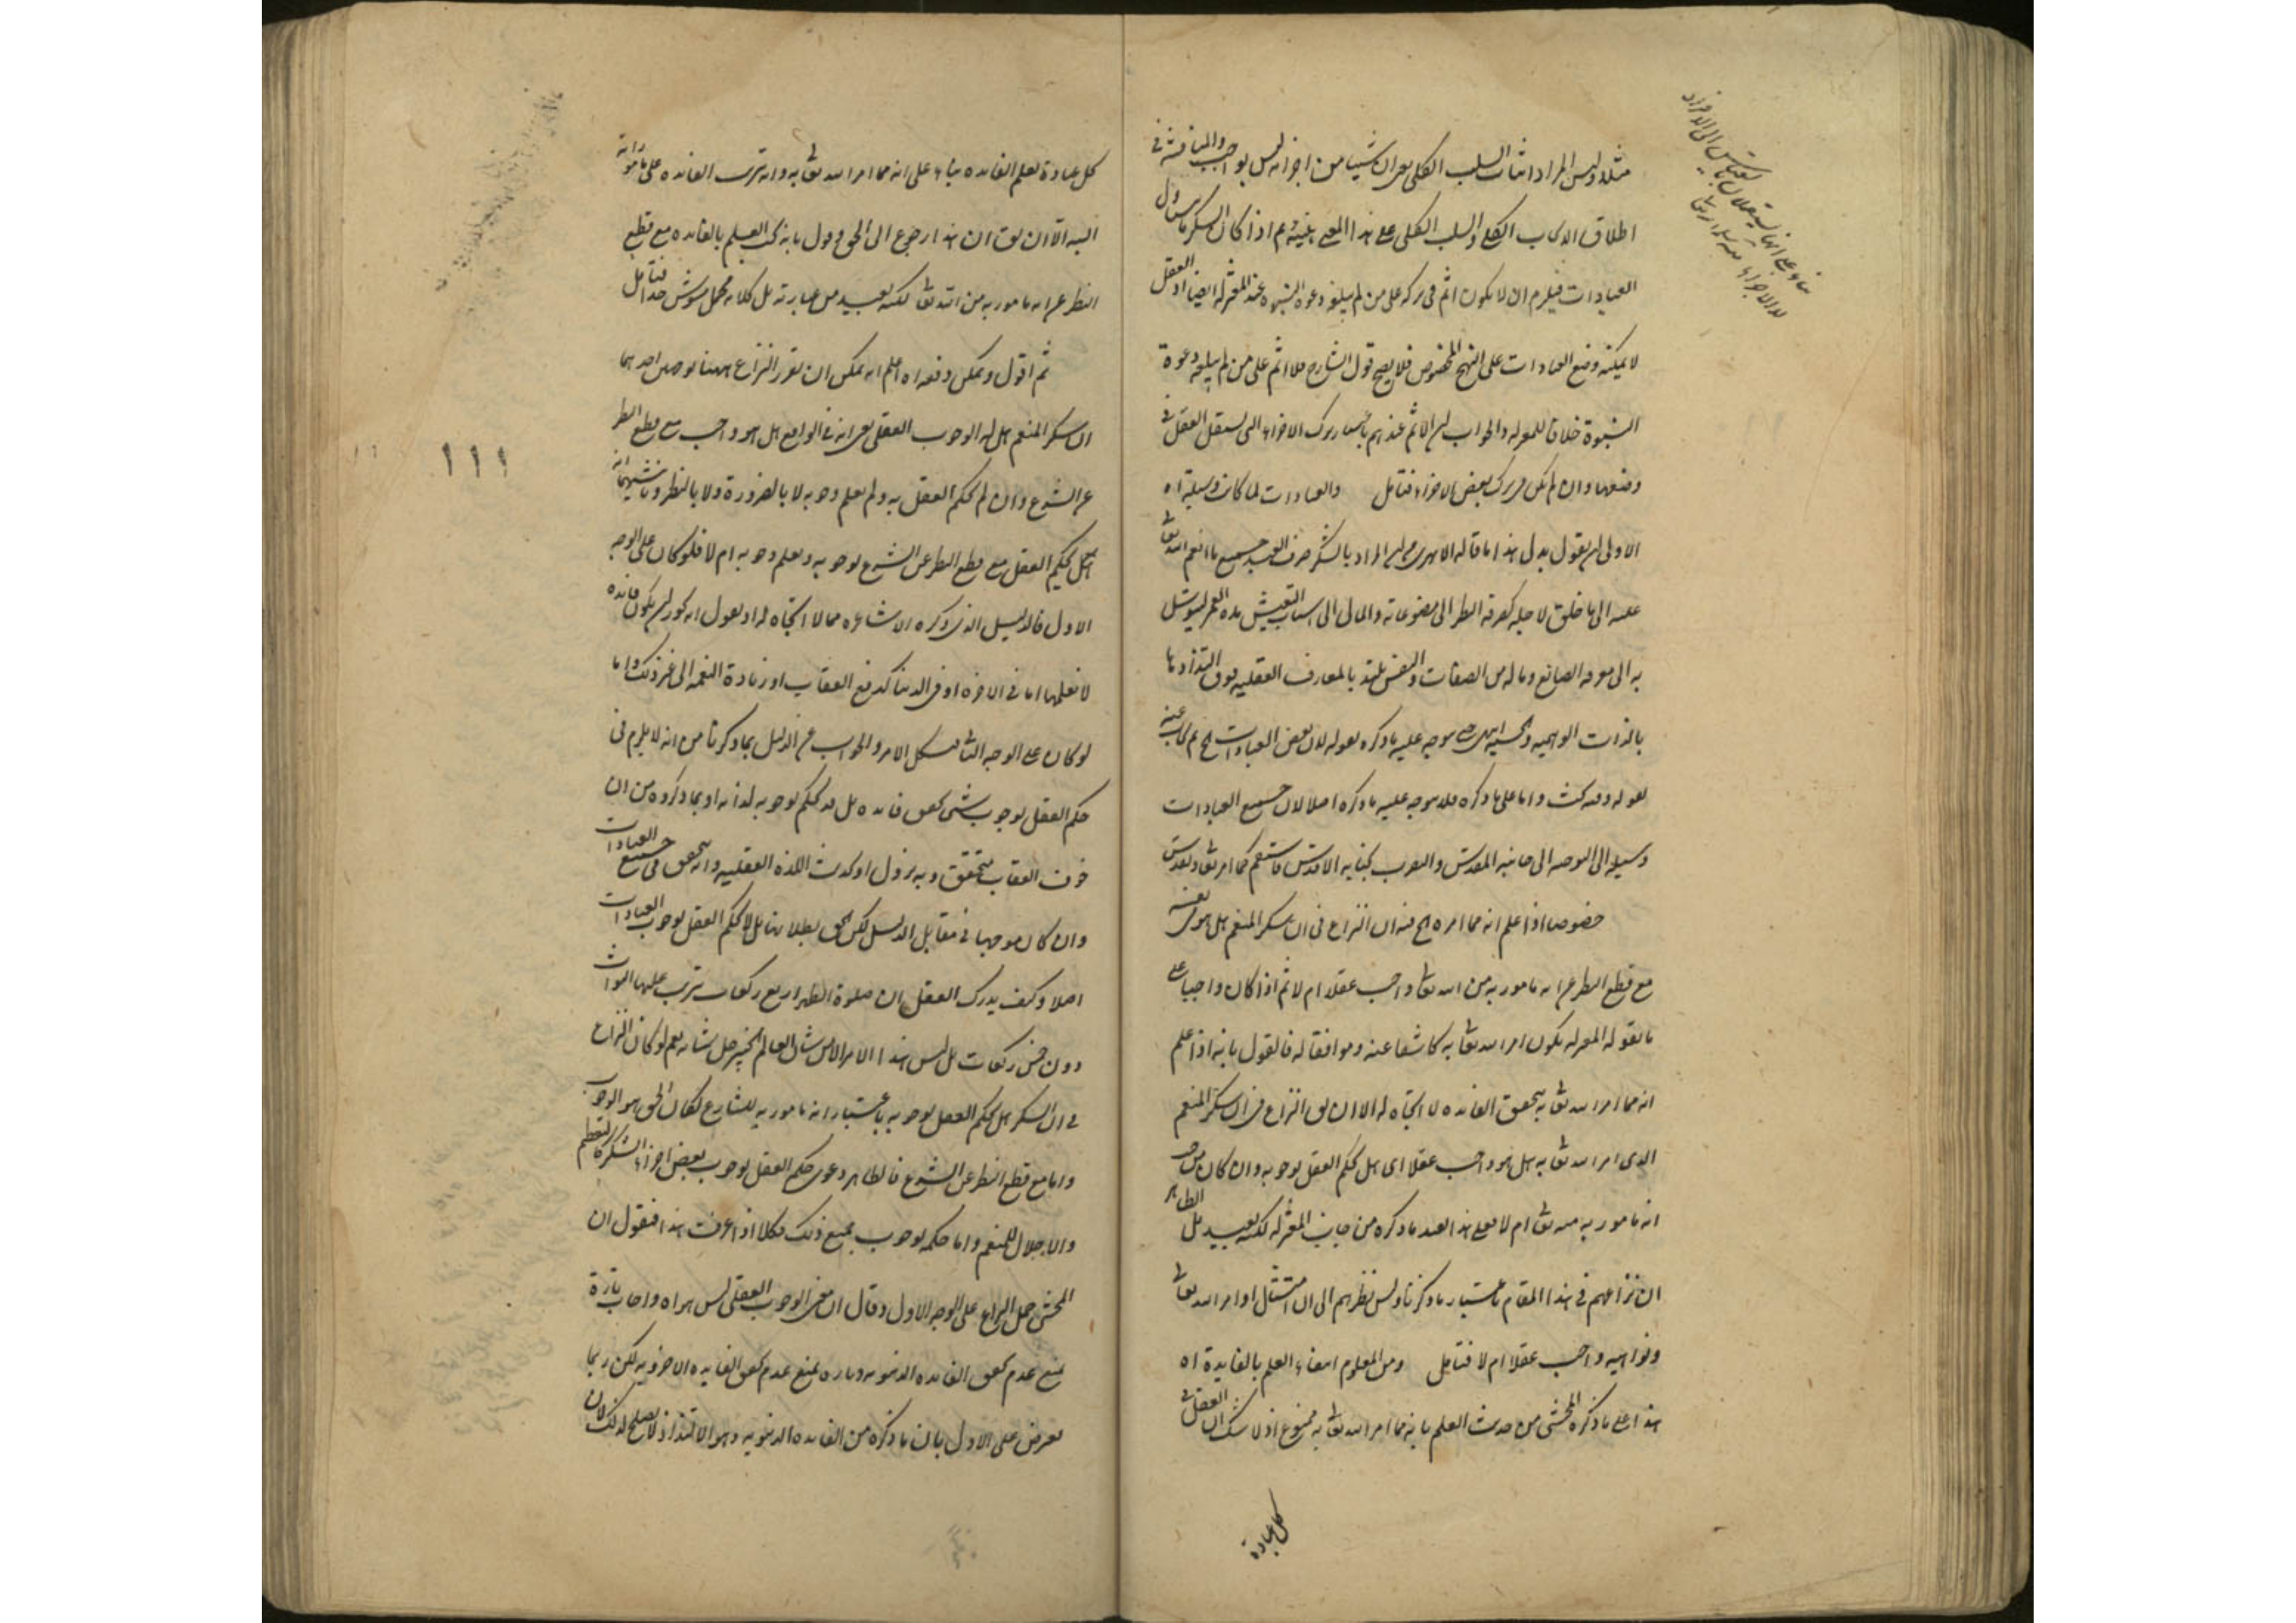 مثلا وليس المراد اثبات السلب الكلى بمعنى ان شيئا من اجزائه ليس بواجب والمناقشة فى
اطلاق الايجاب الكلى والسلب الكلى على هذا المعنى هينة ثم اذا كان الشكر ما يتناول
العبادات فيلزم ان لا يكون اثم فى تركه على من لم يبلغه دعوة النبوة عند المعتزلة ايضا اذ العقل
لا يمكنه وضع العبادات على النهج المخصوص فلا يصح قول الشارح فلا اثم على من لم يبلغه دعوة
النبوة خلافا للمعتزلة والجواب ان الاثم عندهم باعتبار ترك الاجزاء التى يستقل العقل فى
وضعها وان لم يكن فى ترك بعض الاجزاء فتامل والعبادات لما كانت وسيلة اه
الاولى ان يقول بدل هذا اما ما قاله الابهرى من ان المراد بالشكر صرف العبد جميع ما انعم الله تعا
عليه الى ما خلق لاجله كصرفه النظر الى مصنوعاته والمال الى اسباب التعيش مدة العمر ليتوسل
به الى معرفة الصانع وما له من الصفات والنفس تلتذ بالمعارف العقلية فوق التذاذها
بالذات الوهمية والحسية انتهى يتوجه عليه ما ذكره بقوله لان بعض العبادات الخ ثم يجاب عنه
بقوله وفيه بحث واما على ما ذكره فلا يتوجه عليه ما ذكره اصلا لان جميع العبادات
وسيلة الى التوجه الى جانبه المقدس والتقرب بجنابه الاقدس فاستقم كما امر تعا وتقدس
خصوصا اذا علم انه مما امره الخ فيه ان النزاع فى ان شكر المنعم هل هو فى نفسه
مع قطع النظر عن انه مامور به من الله تعا واجب عقلا ام لا ثم اذا كان واجبا على
ما يقوله المعتزلة يكون امر الله تعا به كاشفا عنه وموافقا له فالقول بانه اذا علم
انه مما امر الله تعا به يتحقق الفائدة لا اتجاه له الا ان يق النزاع فى ان شكر المنعم
الذى امر الله تعا به هل هو واجب عقلا اى هل يحكم العقل بوجوبه وان كان من حيث
انه مامور به منه تعا ام لا فعلى هذا القيد ما ذكره من جانب المعتزلة لكنه بعيد بل الظاهر
ان نزاعهم فى هذا المقام باعتبار ما ذكرنا وليس نظرهم الى ان امتثال اوامر الله تعا
ونواهيه واجب عقلا ام لا فتامل ومن المعلوم انتفاء العلم بالفايدة اه
هذا على ما ذكره المحشى من حديث العلم بانه مما امر الله تعا به ممنوع اذ لا شك ان العقل فى
كل عبادة
كل عبادة يعلم الفائدة بناء على انه مما امر الله تعا به وانه ترتب الفائدة على ما هو مامور
البتة الا ان يق ان هذا رجوع الى الحق وقول بانه يجب العلم بالفائدة مع قطع
النظر عن انه مامور به من الله تعا لكنه بعيد من عبارته بل كلامه مجمل مشوش جدا فتامل
ثم اقول ويمكن دفعه اه اعلم انه يمكن ان يقرر النزاع ههنا بوجهين احدهما
ان شكر المنعم هل له الوجوب العقلى بمعنى انه فى الواقع هل هو واجب مع قطع النظر
عن الشرع وان لم يحكم العقل به ولم يعلم وجوبه لا بالضرورة ولا بالنظر وثانيهما انه
هل يحكم العقل مع قطع النظر عن الشرع بوجوبه ويعلم وجوبه ام لا فلو كان على الوجه
الاول فالدليل الذى ذكره الاشاعرة مما لا اتجاه له اذ يقول انه يجوز ان يكون فائدة
لا نعلمها اما فى الاخرة او فى الدنيا كدفع العقاب او زيادة النعمة الى غير ذلك واما
لو كان على الوجه الثانى فيشكل الامر والجواب عن الدليل بما ذكرنا من انه لا يلزم فى
حكم العقل بوجوب شئ تحقق فائدة بل قد يحكم بوجوبه لذاته او بما ذكروه من ان
خوف العقاب متحقق وبه يزول او كحديث اللذة العقلية وانه يتحقق فى جميع العبادات
وان كان موجها فى مقابل الدليل لكن الحق بطلانها بل لا يحكم العقل بوجوب العبادات
اصلا وكيف يدرك العقل ان صلوة الظهر اربع ركعات يترتب عليها الثواب
دون خمس ركعات بل ليس هذا الامر الا من شان العالم الخبير جل شانه نعم لو كان النزاع
فى ان الشكر هل يحكم العقل بوجوبه باعتبار انه مامور به للشارع لكان الحق هو الوجوب
واما مع قطع النظر عن الشرع فالظاهر دعوى حكم العقل بوجوب بعض اجزاء الشكر كالتعظيم
والاجلال للمنعم واما حكمه بوجوب جميع ذلك فكلا اذا عرفت هذا فنقول ان
المحشى حمل النزاع على الوجه الاول وقال ان معنى الوجوب العقلى ليس هو اه واجاب تارة
بمنع عدم تحقق الفائدة الدنيوية وتارة بمنع عدم تحقق الفايدة الاخروية لكن ربما
يعرض على الاول بان ما ذكره من الفائدة الدنيوية وهو الالتذاذ لا يصلح لذلك لان
١١١